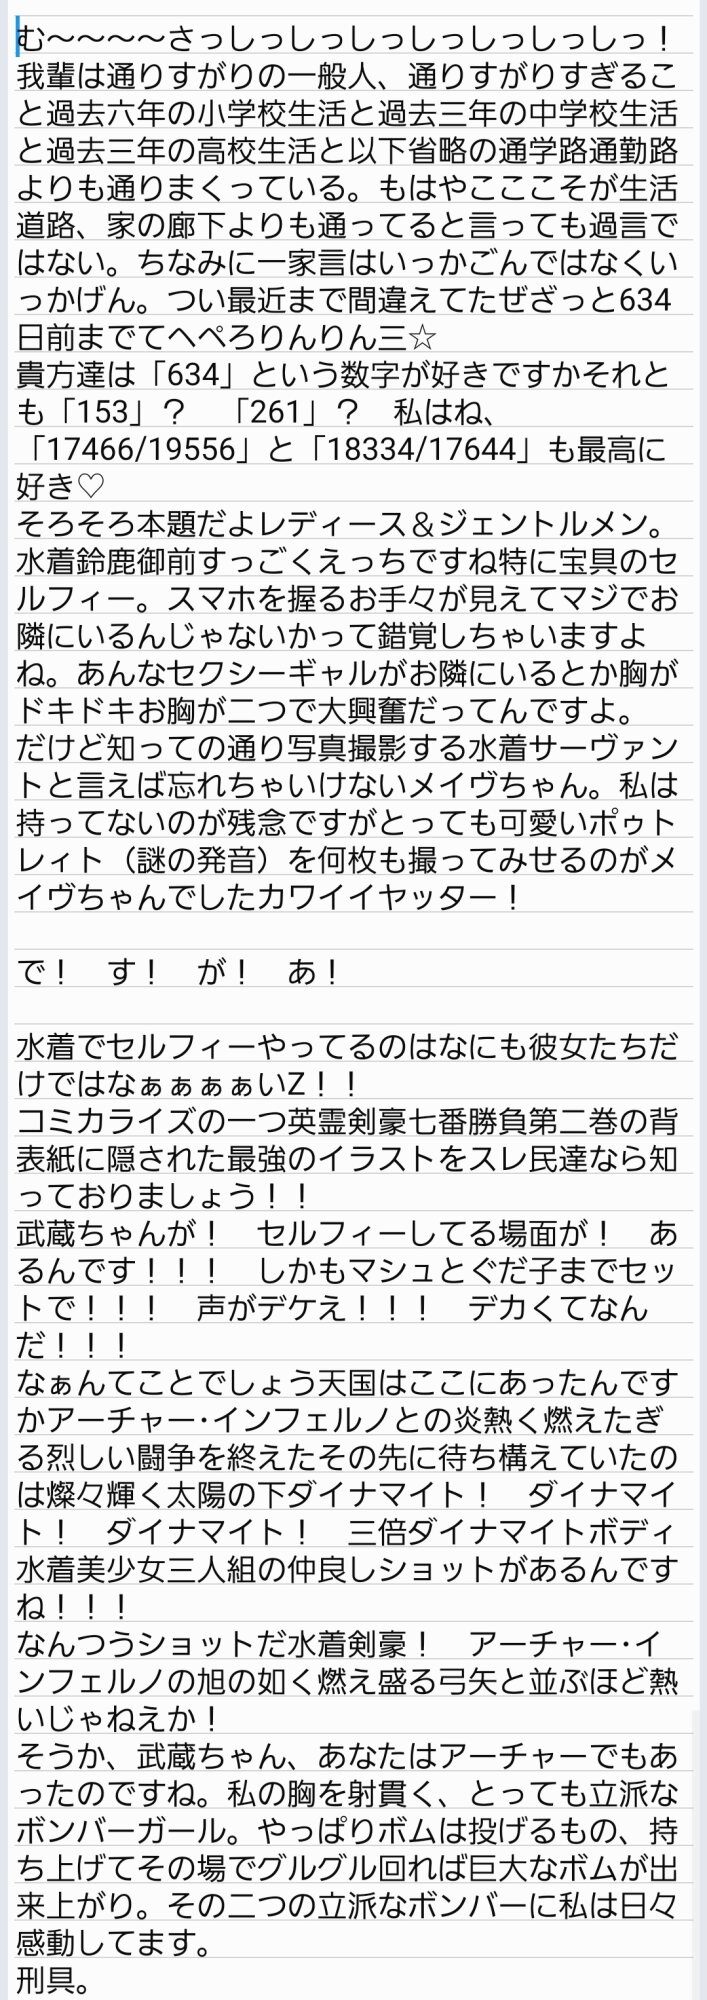 む〜〜〜〜さっしっしっしっしっしっしっしっ！
我輩は通りすがりの一般人、通りすがりすぎるこ
と過去六年の小学校生活と過去三年の中学校生活
と過去三年の高校生活と以下省略の通学路通勤路
よりも通りまくっている。もはやこここそが生活
道路、家の廊下よりも通ってると言っても過言で
はない。ちなみに一家言はいっかごんではなくい
っかげん。つい最近まで間違えてたぜざっと634
日前までてへぺろりんりん三☆
貴方達は「634」という数字が好きですかそれと
も「153」？　「261」？　私はね、
「17466/19556」と「18334/17644」も最高に
好き♡
そろそろ本題だよレディース＆ジェントルメン。
水着鈴鹿御前すっごくえっちですね特に宝具のセ
ルフィー。スマホを握るお手々が見えてマジでお
隣にいるんじゃないかって錯覚しちゃいますよ
ね。あんなセクシーギャルがお隣にいるとか胸が
ドキドキお胸が二つで大興奮だってんですよ。
だけど知っての通り写真撮影する水着サーヴァン
トと言えば忘れちゃいけないメイヴちゃん。私は
持ってないのが残念ですがとっても可愛いポゥト
レィト（謎の発音）を何枚も撮ってみせるのがメ
イヴちゃんでしたカワイイヤッター！
で！　す！　が！　あ！
水着でセルフィーやってるのはなにも彼女たちだ
けではなぁぁぁぁいZ！！
コミカライズの一つ英霊剣豪七番勝負第二巻の背
表紙に隠された最強のイラストをスレ民達なら知
っておりましょう！！
武蔵ちゃんが！　セルフィーしてる場面が！　あ
るんです！！！　しかもマシュとぐだ子までセッ
トで！！！　声がデケえ！！！　デカくてなん
だ！！！
なぁんてことでしょう天国はここにあったんです
かアーチャー･インフェルノとの炎熱く燃えたぎ
る烈しい闘争を終えたその先に待ち構えていたの
は燦々輝く太陽の下ダイナマイト！　ダイナマイ
ト！　ダイナマイト！　三倍ダイナマイトボディ
水着美少女三人組の仲良しショットがあるんです
ね！！！
なんつうショットだ水着剣豪！　アーチャー･イ
ンフェルノの旭の如く燃え盛る弓矢と並ぶほど熱
いじゃねえか！
そうか、武蔵ちゃん、あなたはアーチャーでもあ
ったのですね。私の胸を射貫く、とっても立派な
ボンバーガール。やっぱりボムは投げるもの、持
ち上げてその場でグルグル回れば巨大なボムが出
来上がり。その二つの立派なボンバーに私は日々
感動してます。
刑具。